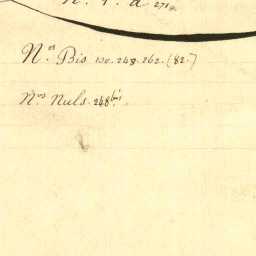 N.os Bis 130. 248. 262. (82.)
N.os Nuls. 248 bis.